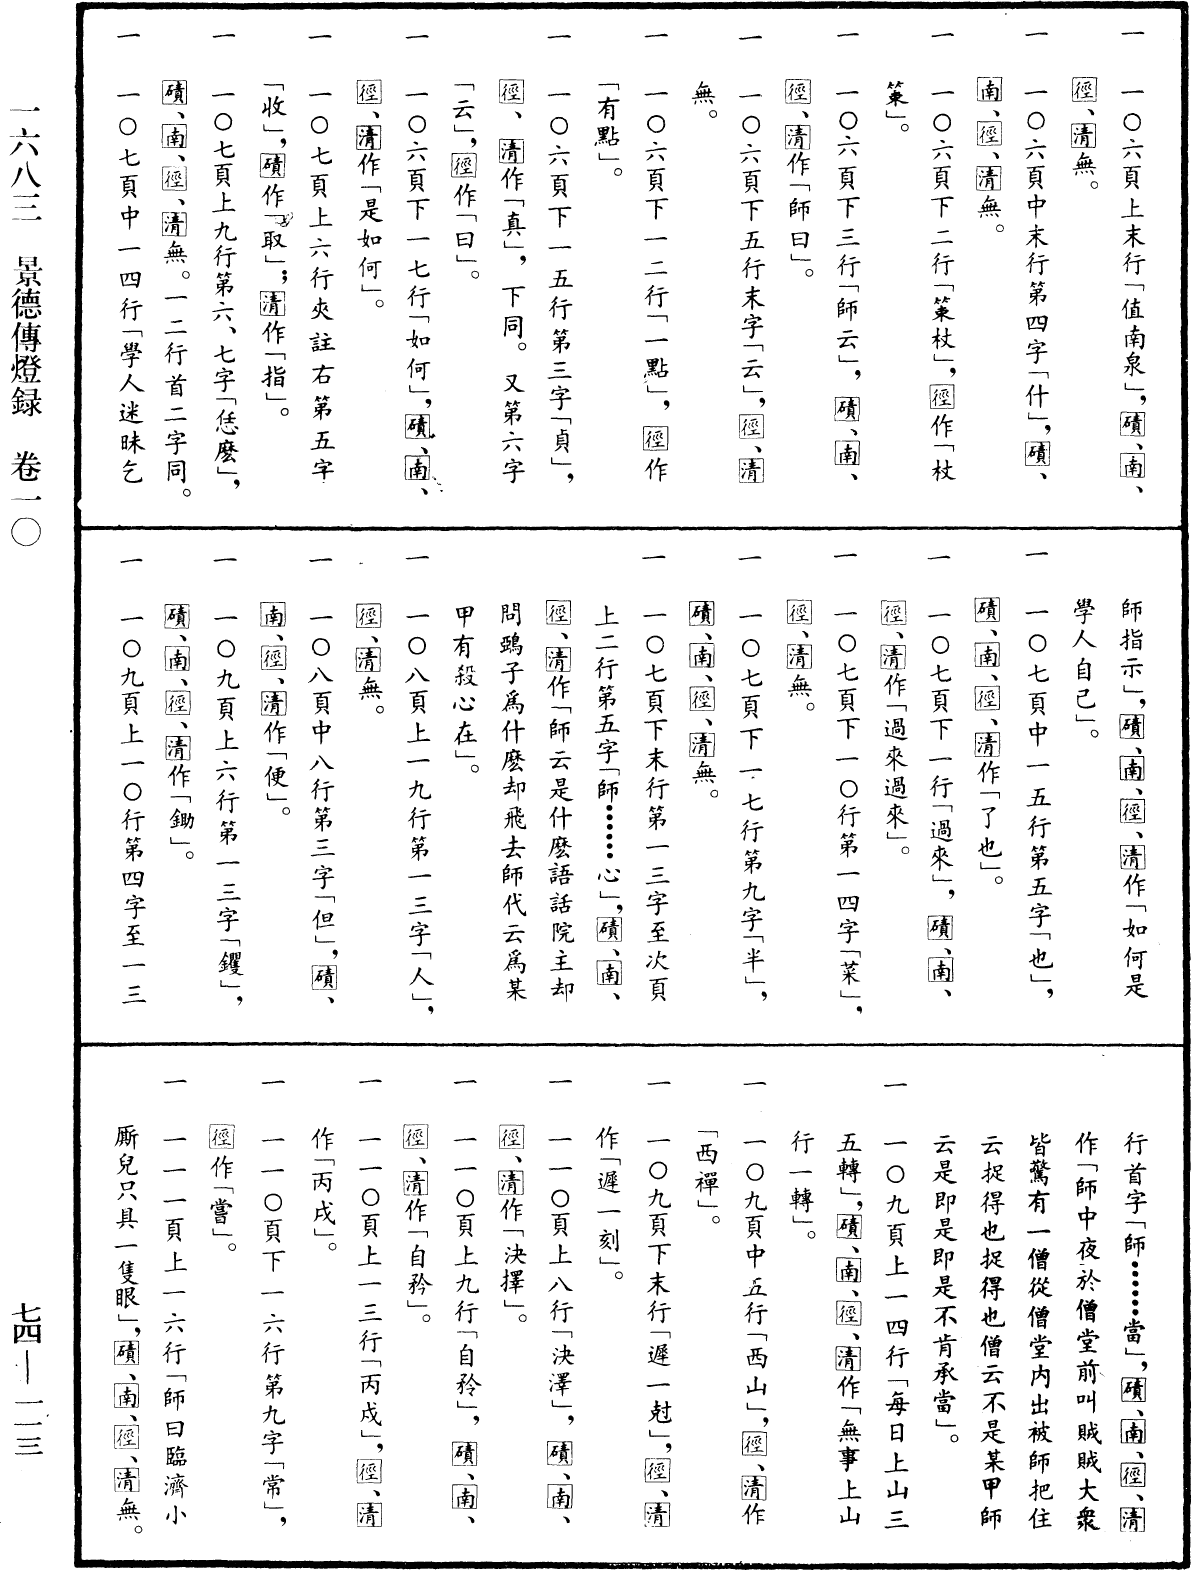 一　一〇六頁上末行「值南泉」，磧、南、
徑、清無。
一　一〇六頁中末行第四字「什」，磧、
南、徑、清無。
一　一〇六頁下二行「策杖」，徑作「杖
策」。
一　一〇六頁下三行「師云」，磧、南、
徑、清作「師曰」。
一　一〇六頁下五行末字「云」，徑、清
無。
一　一〇六頁下一二行「一點」，徑作
「有點」。
一　一〇六頁下一五行第三字「貞」，
徑、清作「真」，下同。又第六字
「云」，徑作「曰」。
一　一〇六頁下一七行「如何」，磧、南、
徑、清作「是如何」。
一　一〇七頁上六行夾註右第五字
「收」，磧作「取」；清作「指」。
一　一〇七頁上九行第六、七字「恁麽」，
磧、南、徑、清無。一二行首二字同。
一　一〇七頁中一四行「學人迷昧乞
師指示」，磧、南、徑、清作「如何是
學人自己」。
一　一〇七頁中一五行第五字「也」，
磧、南、徑、清作「了也」。
一　一〇七頁下一行「過來」，磧、南、
徑、清作「過來過來」。
一　一〇七頁下一〇行第一四字「菜」，
徑、清無。
一　一〇七頁下一七行第九字「半」，
磧、南、徑、清無。
一　一〇七頁下末行第一三字至次頁
上二行第五字「師……心」，磧、南、
徑、清作「師云是什麽語話院主却
問鵶子爲什麽却飛去師代云爲某
甲有殺心在」。
一　一〇八頁上一九行第一三字「人」，
徑、清無。
一　一〇八頁中八行第三字「但」，磧、
南、徑、清作「便」。
一　一〇九頁上六行第一三字「钁」，
磧、南、徑、清作「鋤」。
一　一〇九頁上一〇行第四字至一三
行首字「師……當」，磧、南、徑、清
作「師中夜於僧堂前叫賊賊大衆
皆驚有一僧從僧堂内出被師把住
云捉得也捉得也僧云不是某甲師
云是即是即是不肯承當」。
一　一〇九頁上一四行「每日上山三
五轉」，磧、南、徑、清作「無事上山
行一轉」。
一　一〇九頁中五行「西山」，徑、清作
「西禪」。
一　一〇九頁下末行「遲一尅」，徑、清
作「遲一刻」。
一　一一〇頁上八行「決澤」，磧、南、
徑、清作「決擇」。
一　一一〇頁上九行「自矝」，磧、南、
徑、清作「自矜」。
一　一一〇頁上一三行「丙戍」，徑、清
作「丙戌」。
一　一一〇頁下一六行第九字「常」，
徑作「嘗」。
一　一一一頁上一六行「師曰臨濟小
厮兒只具一隻眼」，磧、南、徑、清無。
一六八三　景德傳燈録　卷一〇
七四—一一三